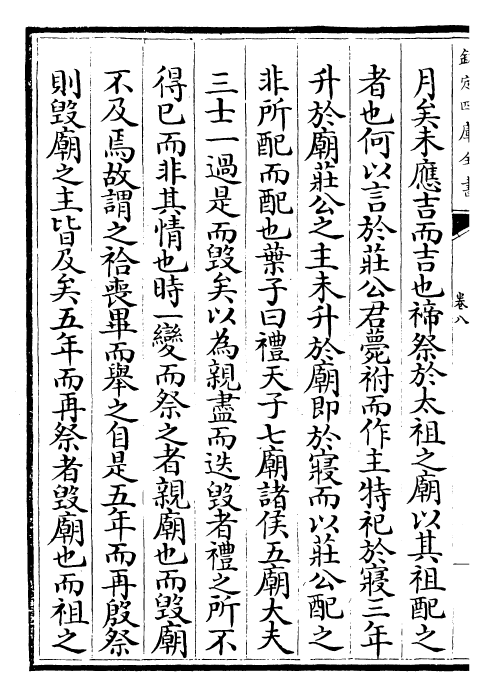 欽定四庫全書
卷八
月矣未應吉而吉也禘祭於太祖之廟以其祖配之
者也何以言於莊公君薨祔而作主特祀於寢三年
升於廟莊公之主未升於廟即於寢而以莊公配之
非所配而配也葉子曰禮天子七廟諸侯五廟大夫
三士一過是而毀矣以為親盡而迭毀者禮之所不
得已而非其情也時一變而祭之者親廟也而毀廟
不及焉故謂之祫喪畢而舉之自是五年而再殷祭
則毀廟之主皆及矣五年而再祭者毀廟也而祖之